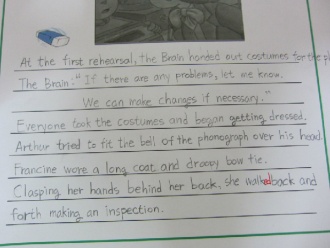 At the first rehearsal, the Brain handed out costumes for the
The Brain: "If there are any problems, let me know.
We can make changes if necessary."
Everyone took the costumes and began getting dressed.
Arthur tried to fit the bell of the phonograph over his head.
Francine wore a long coat and droopy bow tie.
Clasping her hands behind her back, she walked back and
forth making an inspection.